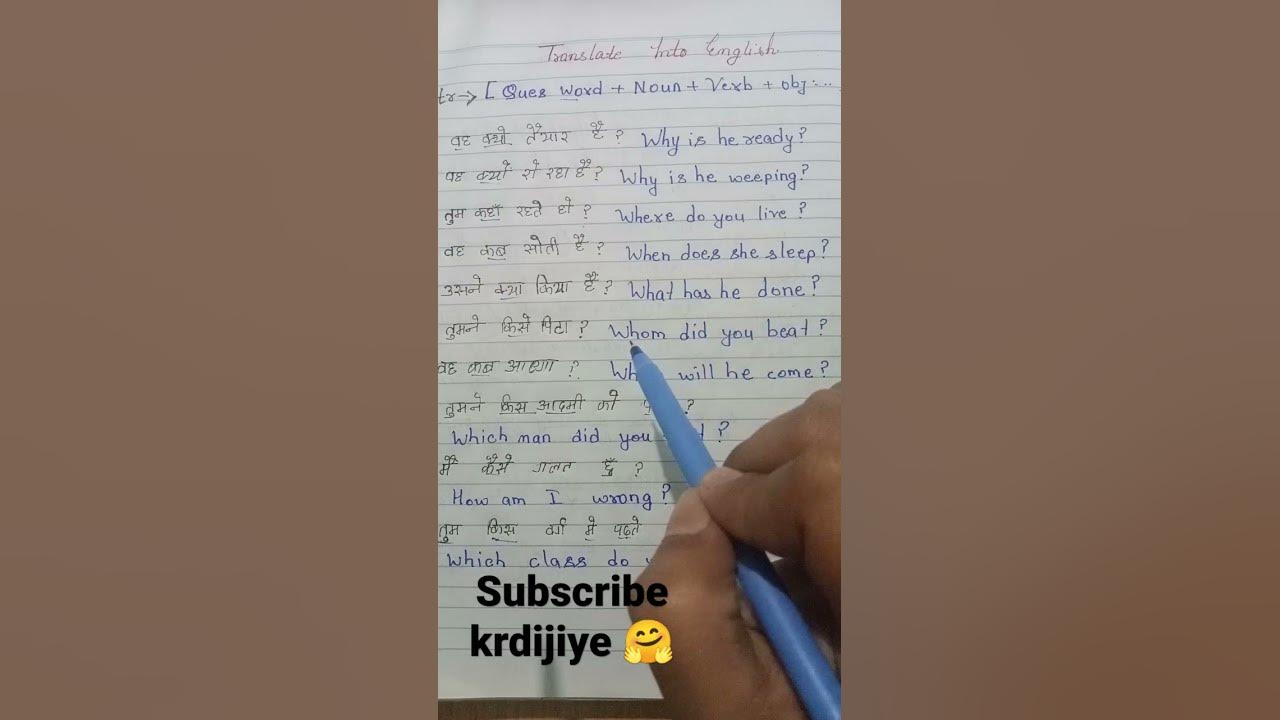 Translate Into English
tr→ [ Ques word + Noun + Verb + obj....
वह क्यो तैयार है ? Why is he ready?
वह क्यों रो रहा है ? Why is he weeping?
तुम कहाँ रहते हो ? Where do you live ?
वह कब सोती है ? When does she sleep?
उसने क्या किया है ? What has he done?
तुमने किसे पिटा ? Whom did you beat ?
वह कब आएगा ? will he come?
तुमने किस आदमी को ?
Which man did you ?
मैं कैसे गलत हूँ ?
How am I wrong?
तुम किस वर्ग में पढ़ते
Which class do
Subscribe
krdijiye 🤗